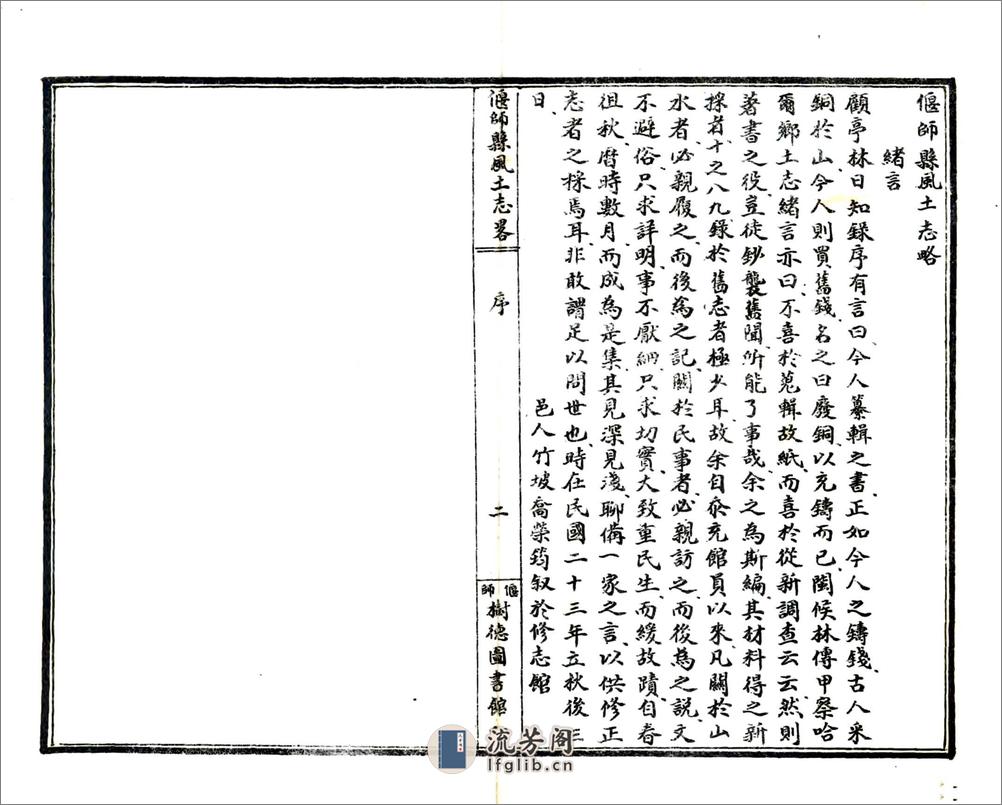 偃師縣風土志略
緒言
顧亭林日知錄序有言曰今人纂輯之書、正如今人之鑄錢、古人采
銅於山、今人則買舊錢名之曰廢銅、以充鑄而已、閩侯林傳甲察哈
爾鄉土志緒言亦曰、不喜於蒐輯故紙、而喜於從新調查云云、然則
著書之役、豈徒鈔襲舊聞所能了事哉、余之為斯編、其材料得之新
採者十之八九、錄於舊志者極少耳、故余自忝充館員以來、凡關於山
水者、必親履之、而後為之記、關於民事者、必親訪之、而後為之說、文
不避俗、只求詳明、事不厭細、只求切實、大致重民生、而緩故蹟、自春
徂秋、曆時數月、而成為是集、其見深見淺、聊備一家之言、以供修正
志者之採焉耳、非敢謂足以問世也、時在民國二十三年立秋後三
日、
邑人竹坡喬榮筠叙於修志館
偃師縣風土志畧
序
二
偃師
樹德圖書館
流芳阁
lfglib.cn